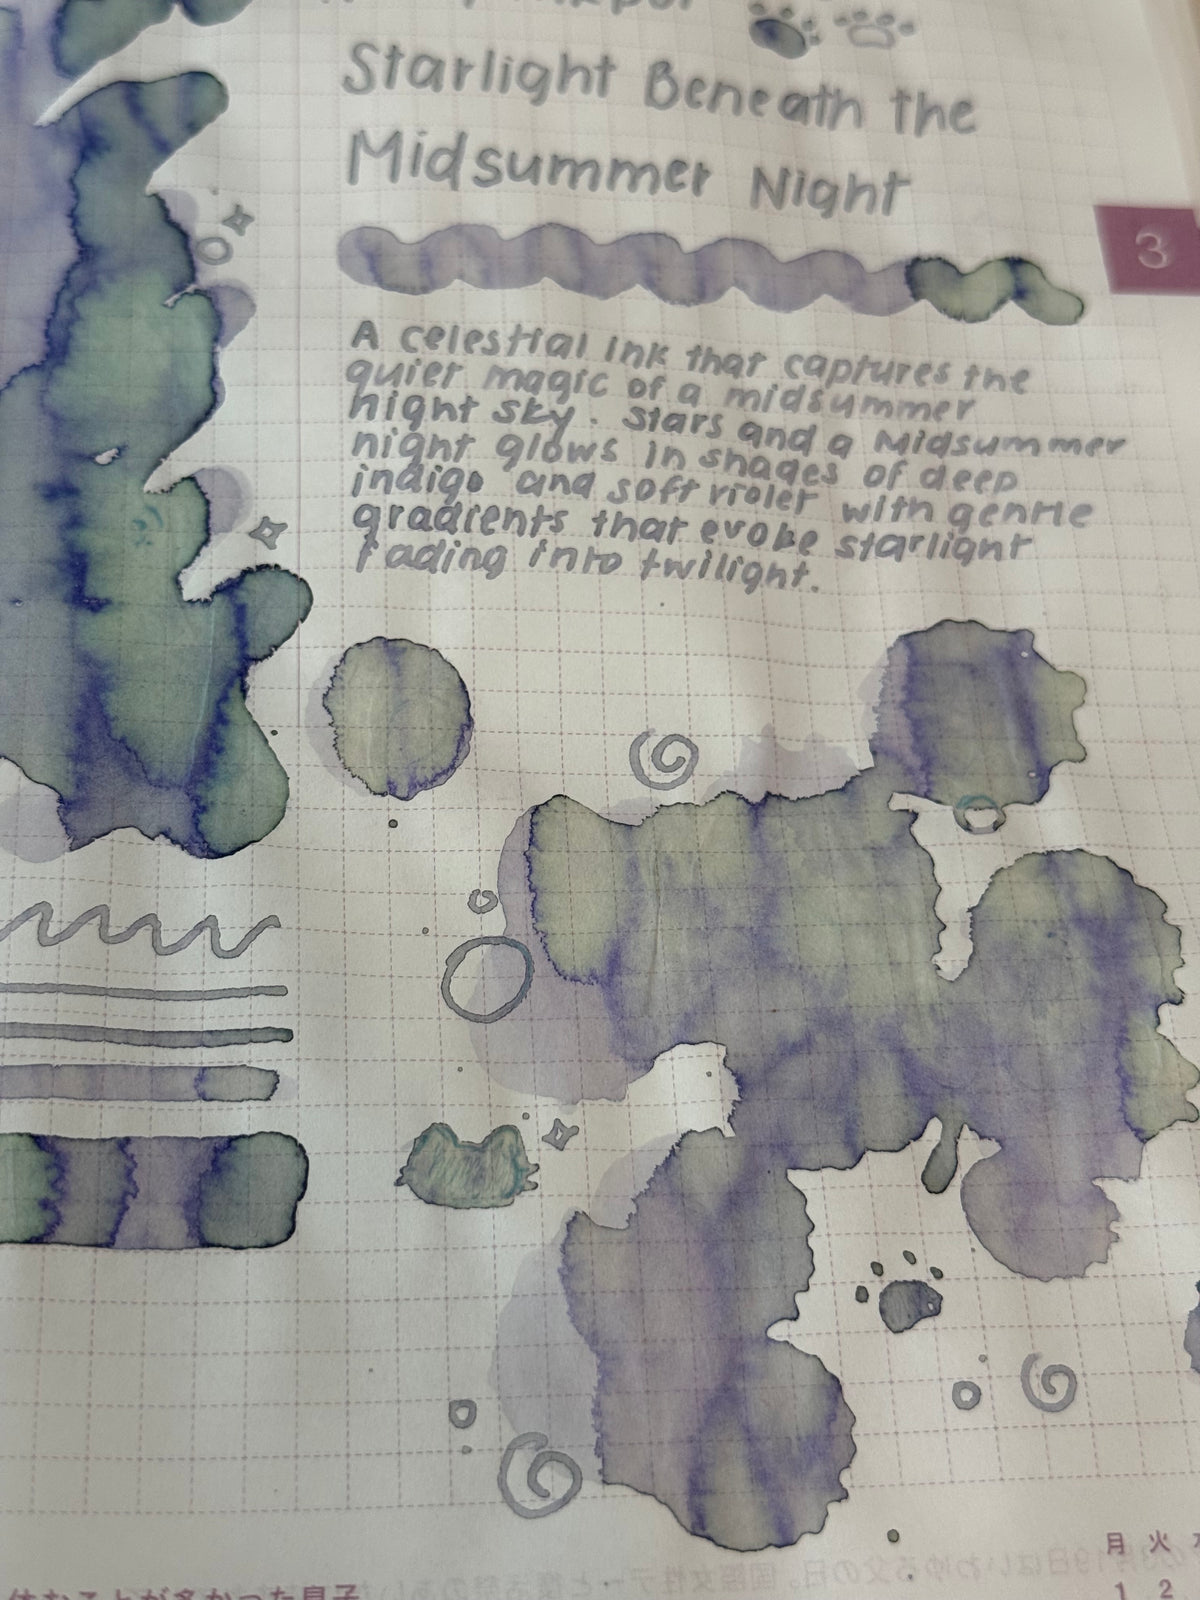 Starlight Beneath the
Midsummer Night
3
A celestial ink that captures the
quiet magic of a midsummer
night sky. Stars and a Midsummer
night glows in shades of deep
indigo and soft violet with gentle
gradients that evoke starlight
fading into twilight.
月 火
1 2
休むことが多かった息子